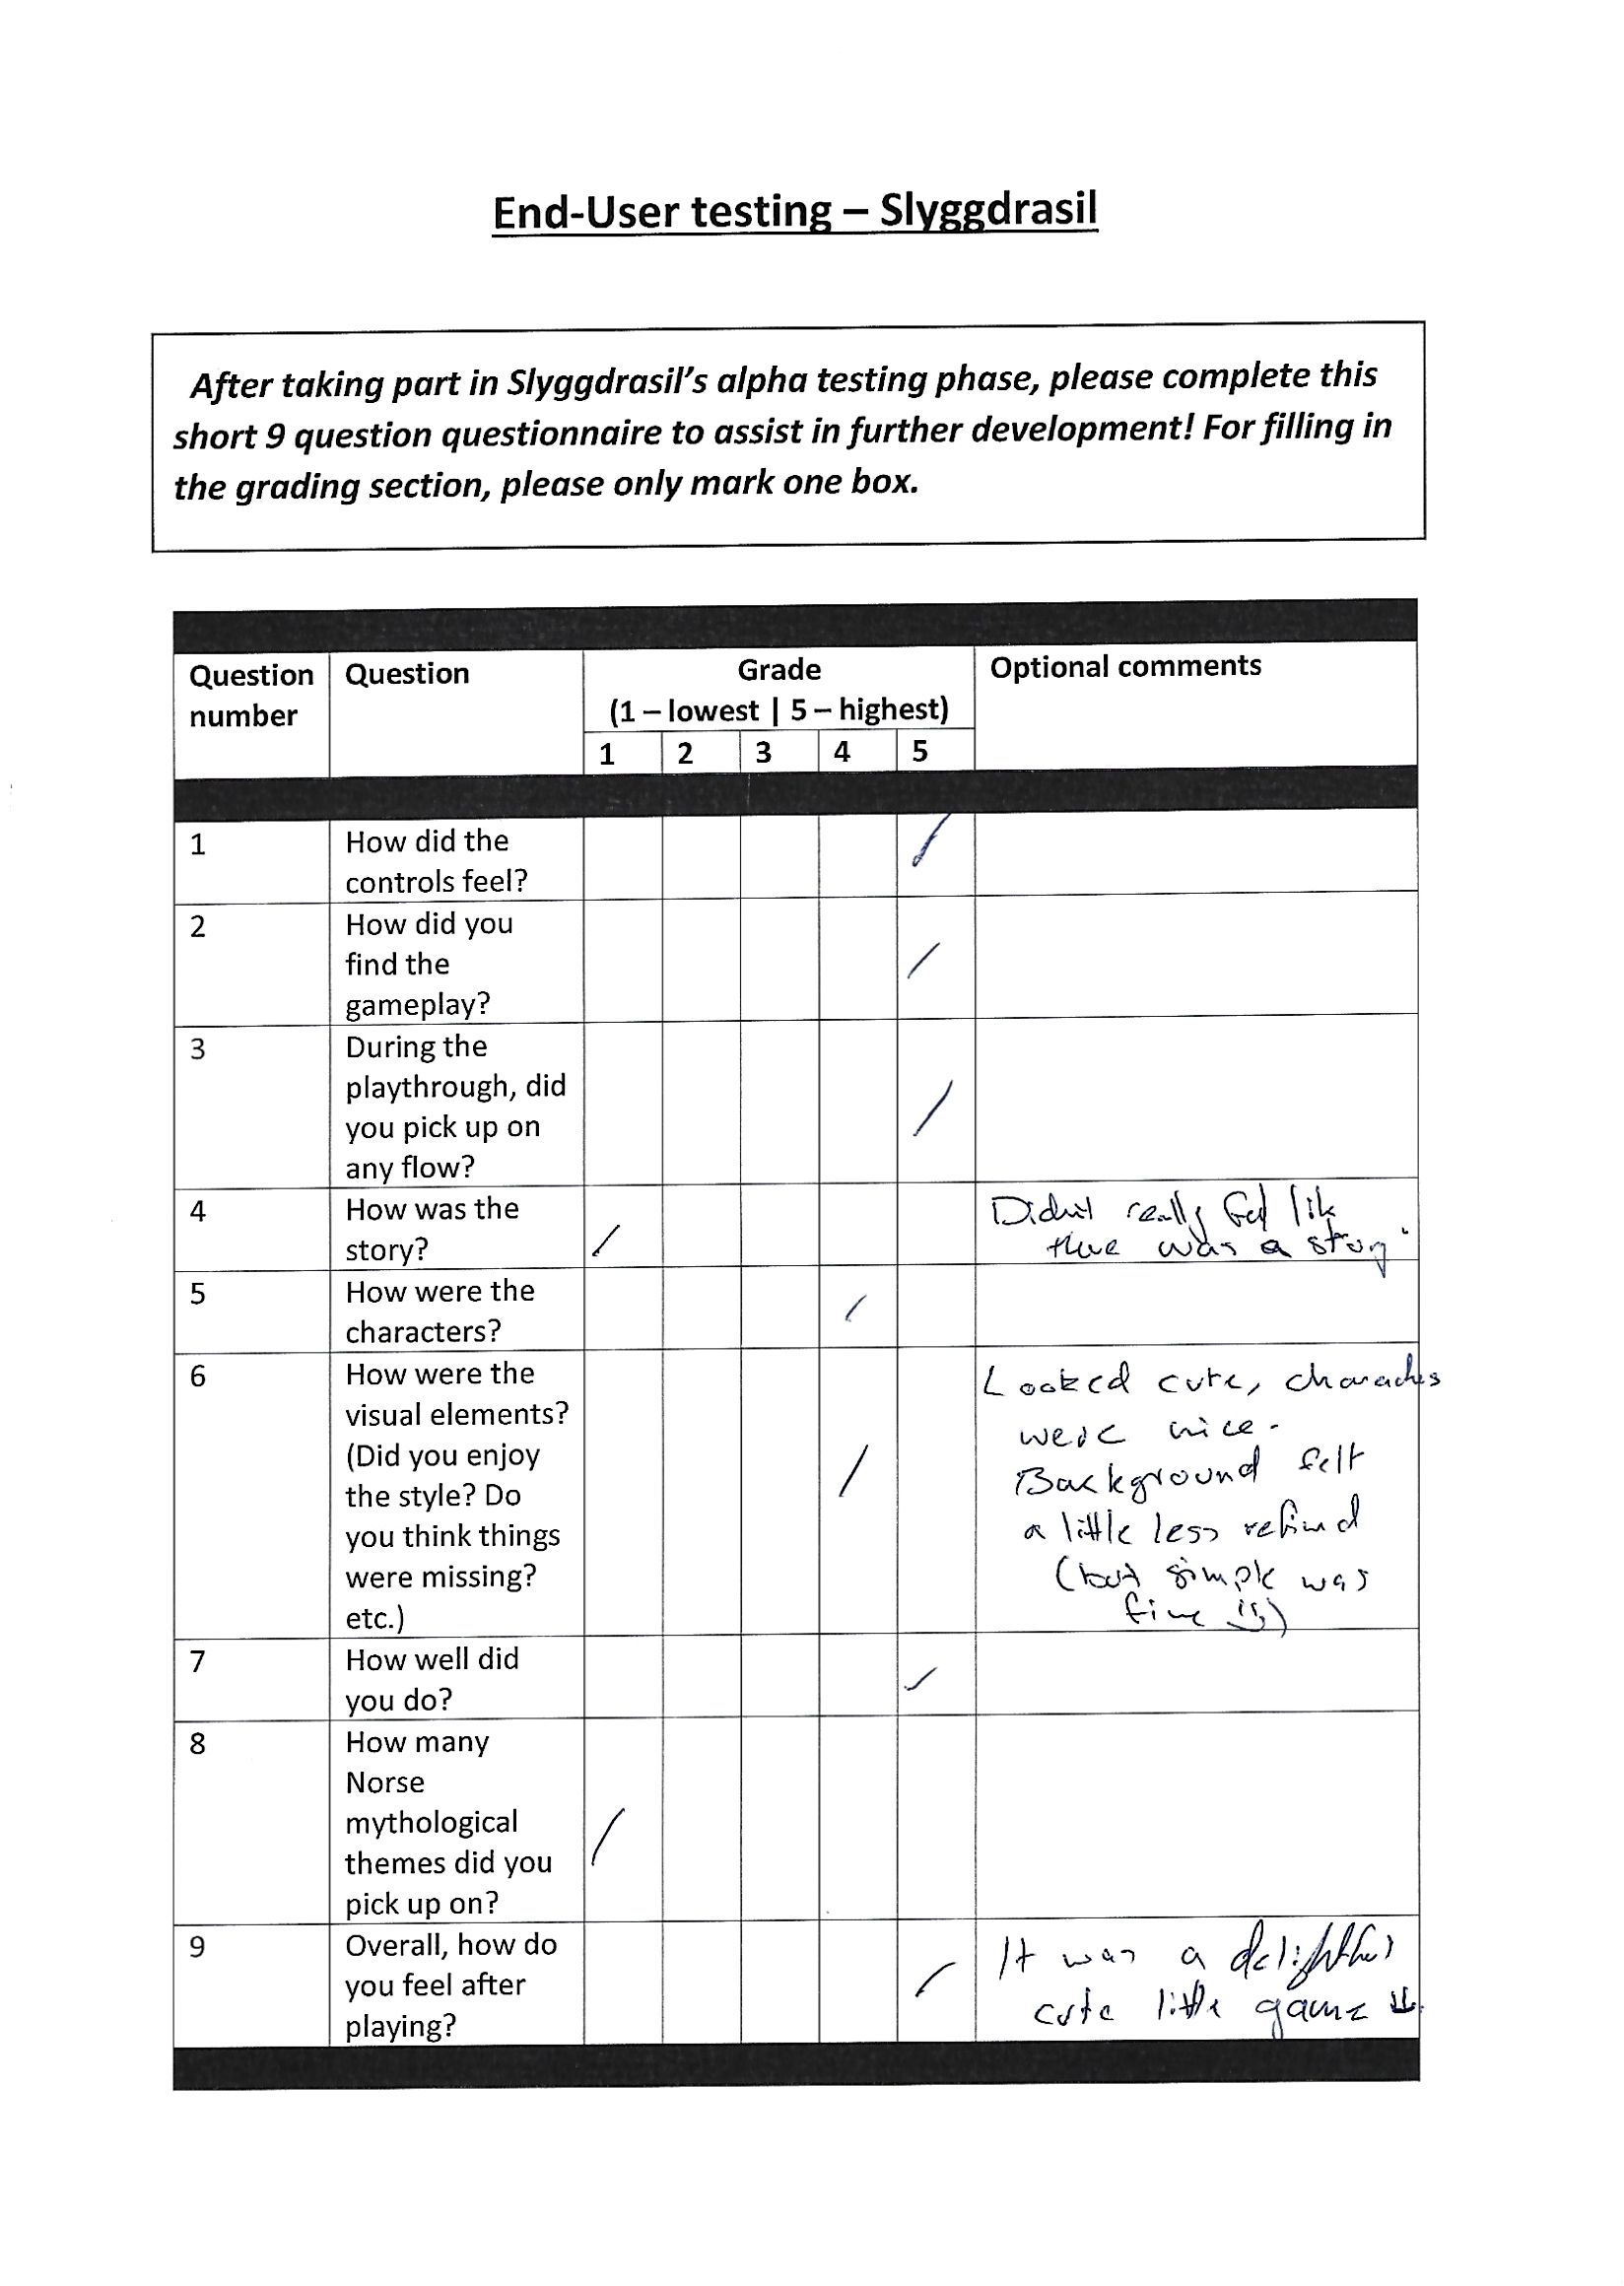 End-User testing – Slyggdrasil
After taking part in Slyggdrasil's alpha testing phase, please complete this
short 9 question questionnaire to assist in further development! For filling in
the grading section, please only mark one box.
Question number
Question
Grade
(1 – lowest | 5 – highest)
Optional comments
1 2 3 4 5
1
How did the
controls feel?
2
How did you
find the
gameplay?
3
During the
playthrough, did
you pick up on
any flow?
4
How was the
story?
Didn't really feel like
there was a story
5
How were the
characters?
6
How were the
visual elements?
(Did you enjoy
the style? Do
you think things
were missing?
etc.)
Looked cute, characters
were nice.
Background felt
a little less refined
(but simple was
fine :))
7
How well did
you do?
8
How many
Norse
mythological
themes did you
pick up on?
9
Overall, how do
you feel after
playing?
It was a delightful
cute little game